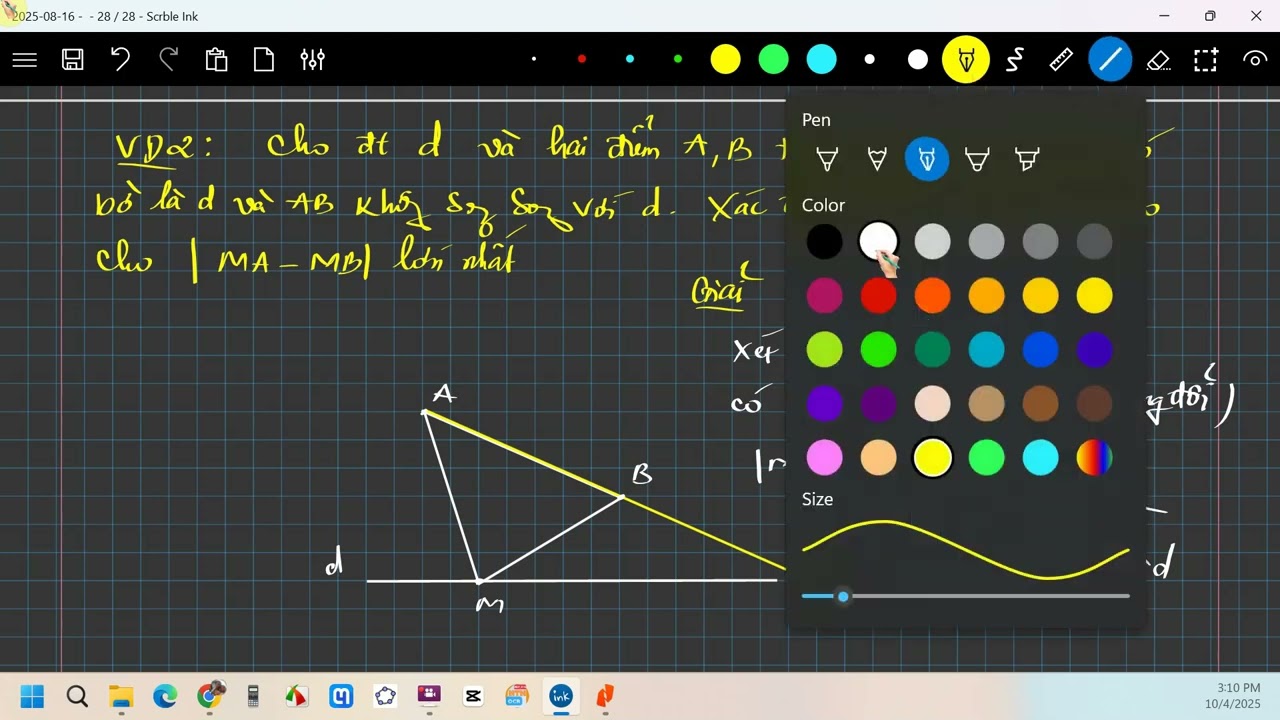 2025-08-16 - - 28 / 28 - Scrble Ink
Pen
VD2: Cho đt d và hai điểm A, B
bờ là d và AB không song song với d. Xác
cho |MA - MB| lớn nhất
Color
Giải
Xét
có
A
B
d
M
d
Size
3:10 PM
10/4/2025